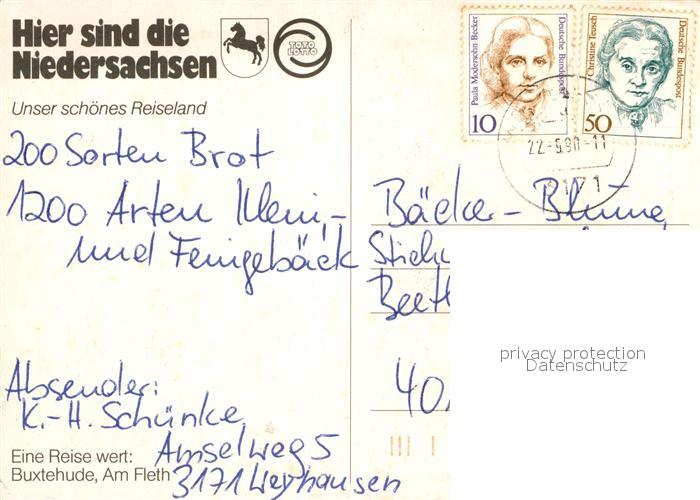 Hier sind die
Niedersachsen
TOTO
LOTTO
Unser schönes Reiseland
200 Sorten Brot
1200 Arten Klein-
und Feingebäck
Absender:
K.-H. Schünke
Amselweg 5
3171 Weyhausen
Eine Reise wert:
Buxtehude, Am Fleth
Paula Modersohn-Becker
Deutsche Bundespost
10
Christine Teusch
Deutsche Bundespost
50
22-5.90-11
3171
Bäcker-Blume,
Stich
Beet
40
privacy protection
Datenschutz